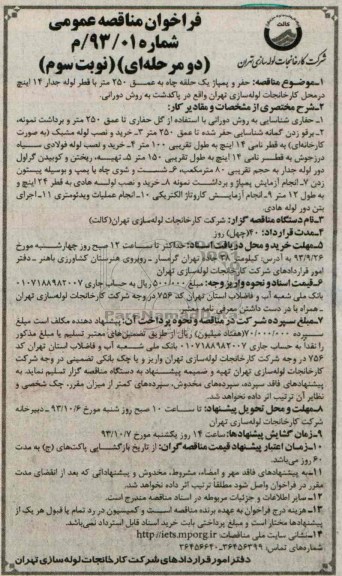 فراخوان مناقصه عمومی
شماره ۹۳/۰۱/م
(دو مرحله‌ای) (نوبت سوم)
کالت
شرکت کارخانجات لوله‌سازی تهران
۱-موضوع مناقصه: حفر و پمپاژ یک حلقه چاه به عمق ۲۵۰ متر با قطر لوله جدار ۱۴ اینچ
در محل کارخانجات لوله‌سازی تهران واقع در پاکدشت به روش دورانی.
۲-شرح مختصری از مشخصات و مقادیر کار:
۱-حفاری شناسایی به روش دورانی با استفاده از گل حفاری تا عمق ۲۵۰ متر و برداشت نمونه،
۲-برقو زدن گمانه شناسایی حفر شده تا عمق ۲۵۰ متر ۳-خرید و نصب لوله مشبک (به صورت
کارخانه‌ای) به قطر نامی ۱۴ اینچ به طول تقریبی ۱۰۰ متر ۴-خرید و نصب لوله فولادی سیاه
درزجوش به قطر نامی ۱۴ اینچ به طول تقریبی ۱۵۰ متر ۵-تهیه، ریختن و کوبیدن گراول
دور لوله جدار به حجم تقریبی ۸۰ مترمکعب ۶-شست و شوی چاه با پمپ و بوسیله پیستون
زدن ۷-انجام آزمایش پمپاژ و برداشت نمونه ۸-خرید و نصب لوله هادی به قطر ۲۴ اینچ و
به طول ۱۲ متر ۹-انجام آزمایش کاروتاژ الکتریکی ۱۰-انجام عملیات ویدئومتری ۱۱-اجرای
بتن دور لوله هادی
۳-نام دستگاه مناقصه گزار: شرکت کارخانجات لوله‌سازی تهران (کالت)
۴-مدت قرارداد: ۴۰ (چهل) روز
۵-مهلت خرید و محل دریافت اسناد: حداکثر تا ساعت ۱۲ صبح روز چهارشنبه مورخ
۹۳/۹/۲۶ به آدرس: کیلومتر ۳۸ جاده تهران گرمسار - روبروی هنرستان کشاورزی باهنر - دفتر
امور قراردادهای شرکت کارخانجات لوله‌سازی تهران
۶-قیمت اسناد و نحوه واریز وجه: مبلغ ۵۰۰/۰۰۰ ریال به حساب جاری ۰۱۰۷۱۸۸۹۸۲۰۰۷
بانک ملی شعبه آب و فاضلاب استان تهران کد ۷۵۶ در وجه شرکت کارخانجات لوله‌سازی تهران
- همراه با در دست داشتن معرفی نامه معتبر
۷-مبلغ سپرده شرکت در مناقصه و نحوه پرداخت آن: پیشنهاد دهنده مکلف است مبلغ
سپرده ۷۰/۰۰۰/۰۰۰ (هفتاد میلیون) ریال از طریق تضمین‌های معتبر تسلیم یا مبلغ مذکور
را نقدا به حساب جاری ۰۱۰۷۱۸۸۹۸۲۰۰۷ بانک ملی شعبه آب و فاضلاب استان تهران کد
۷۵۶ در وجه شرکت کارخانجات لوله‌سازی تهران واریز و یا چک بانکی تضمینی در وجه شرکت
کارخانجات لوله‌سازی تهران تهیه و ضمیمه پیشنهاد به دستگاه مناقصه گزار تسلیم نماید. به
پیشنهادهای فاقد سپرده، سپرده‌های مخدوش، سپرده‌های کمتر از میزان مقرر، چک شخصی و
نظایر آن ترتیب اثر داده نخواهد شد.
۸-مهلت و محل تحویل پیشنهاد: تا ساعت ۱۰ صبح روز شنبه مورخ ۹۳/۱۰/۶ - دبیرخانه
شرکت کارخانجات لوله‌سازی تهران
۹-زمان گشایش پیشنهادها: ساعت ۱۴ روز یکشنبه مورخ ۹۳/۱۰/۷
۱۰-زمان اعتبار پیشنهاد قیمت مناقصه گران: از تاریخ بازگشایی پاکت‌های (ج) به مدت
۶۰ روز می‌باشد.
۱۱-به پیشنهادهای فاقد مهر و امضاء، مشروط، مخدوش و پیشنهاداتی که بعد از انقضای مدت
مقرر در فراخوان واصل شود مطلقا ترتیب اثر داده نخواهد شد.
۱۲-سایر اطلاعات و جزئیات مربوطه در اسناد مناقصه مندرج است.
۱۳-هزینه درج فراخوان به عهده برنده مناقصه است و کمیسیون در رد تمام یا قبول هر یک از
پیشنهادها مختار است و مبلغ پرداختی بابت خرید اسناد قابل استرداد نمی‌باشد.
۱۴-نشانی سایت ملی مناقصات http://iets.mporg.ir
شماره‌های تماس: ۳۶۴۵۶۳۹۹-۳۶۴۵۶۶۴۰
دفتر امور قراردادهای شرکت کارخانجات لوله‌سازی تهران